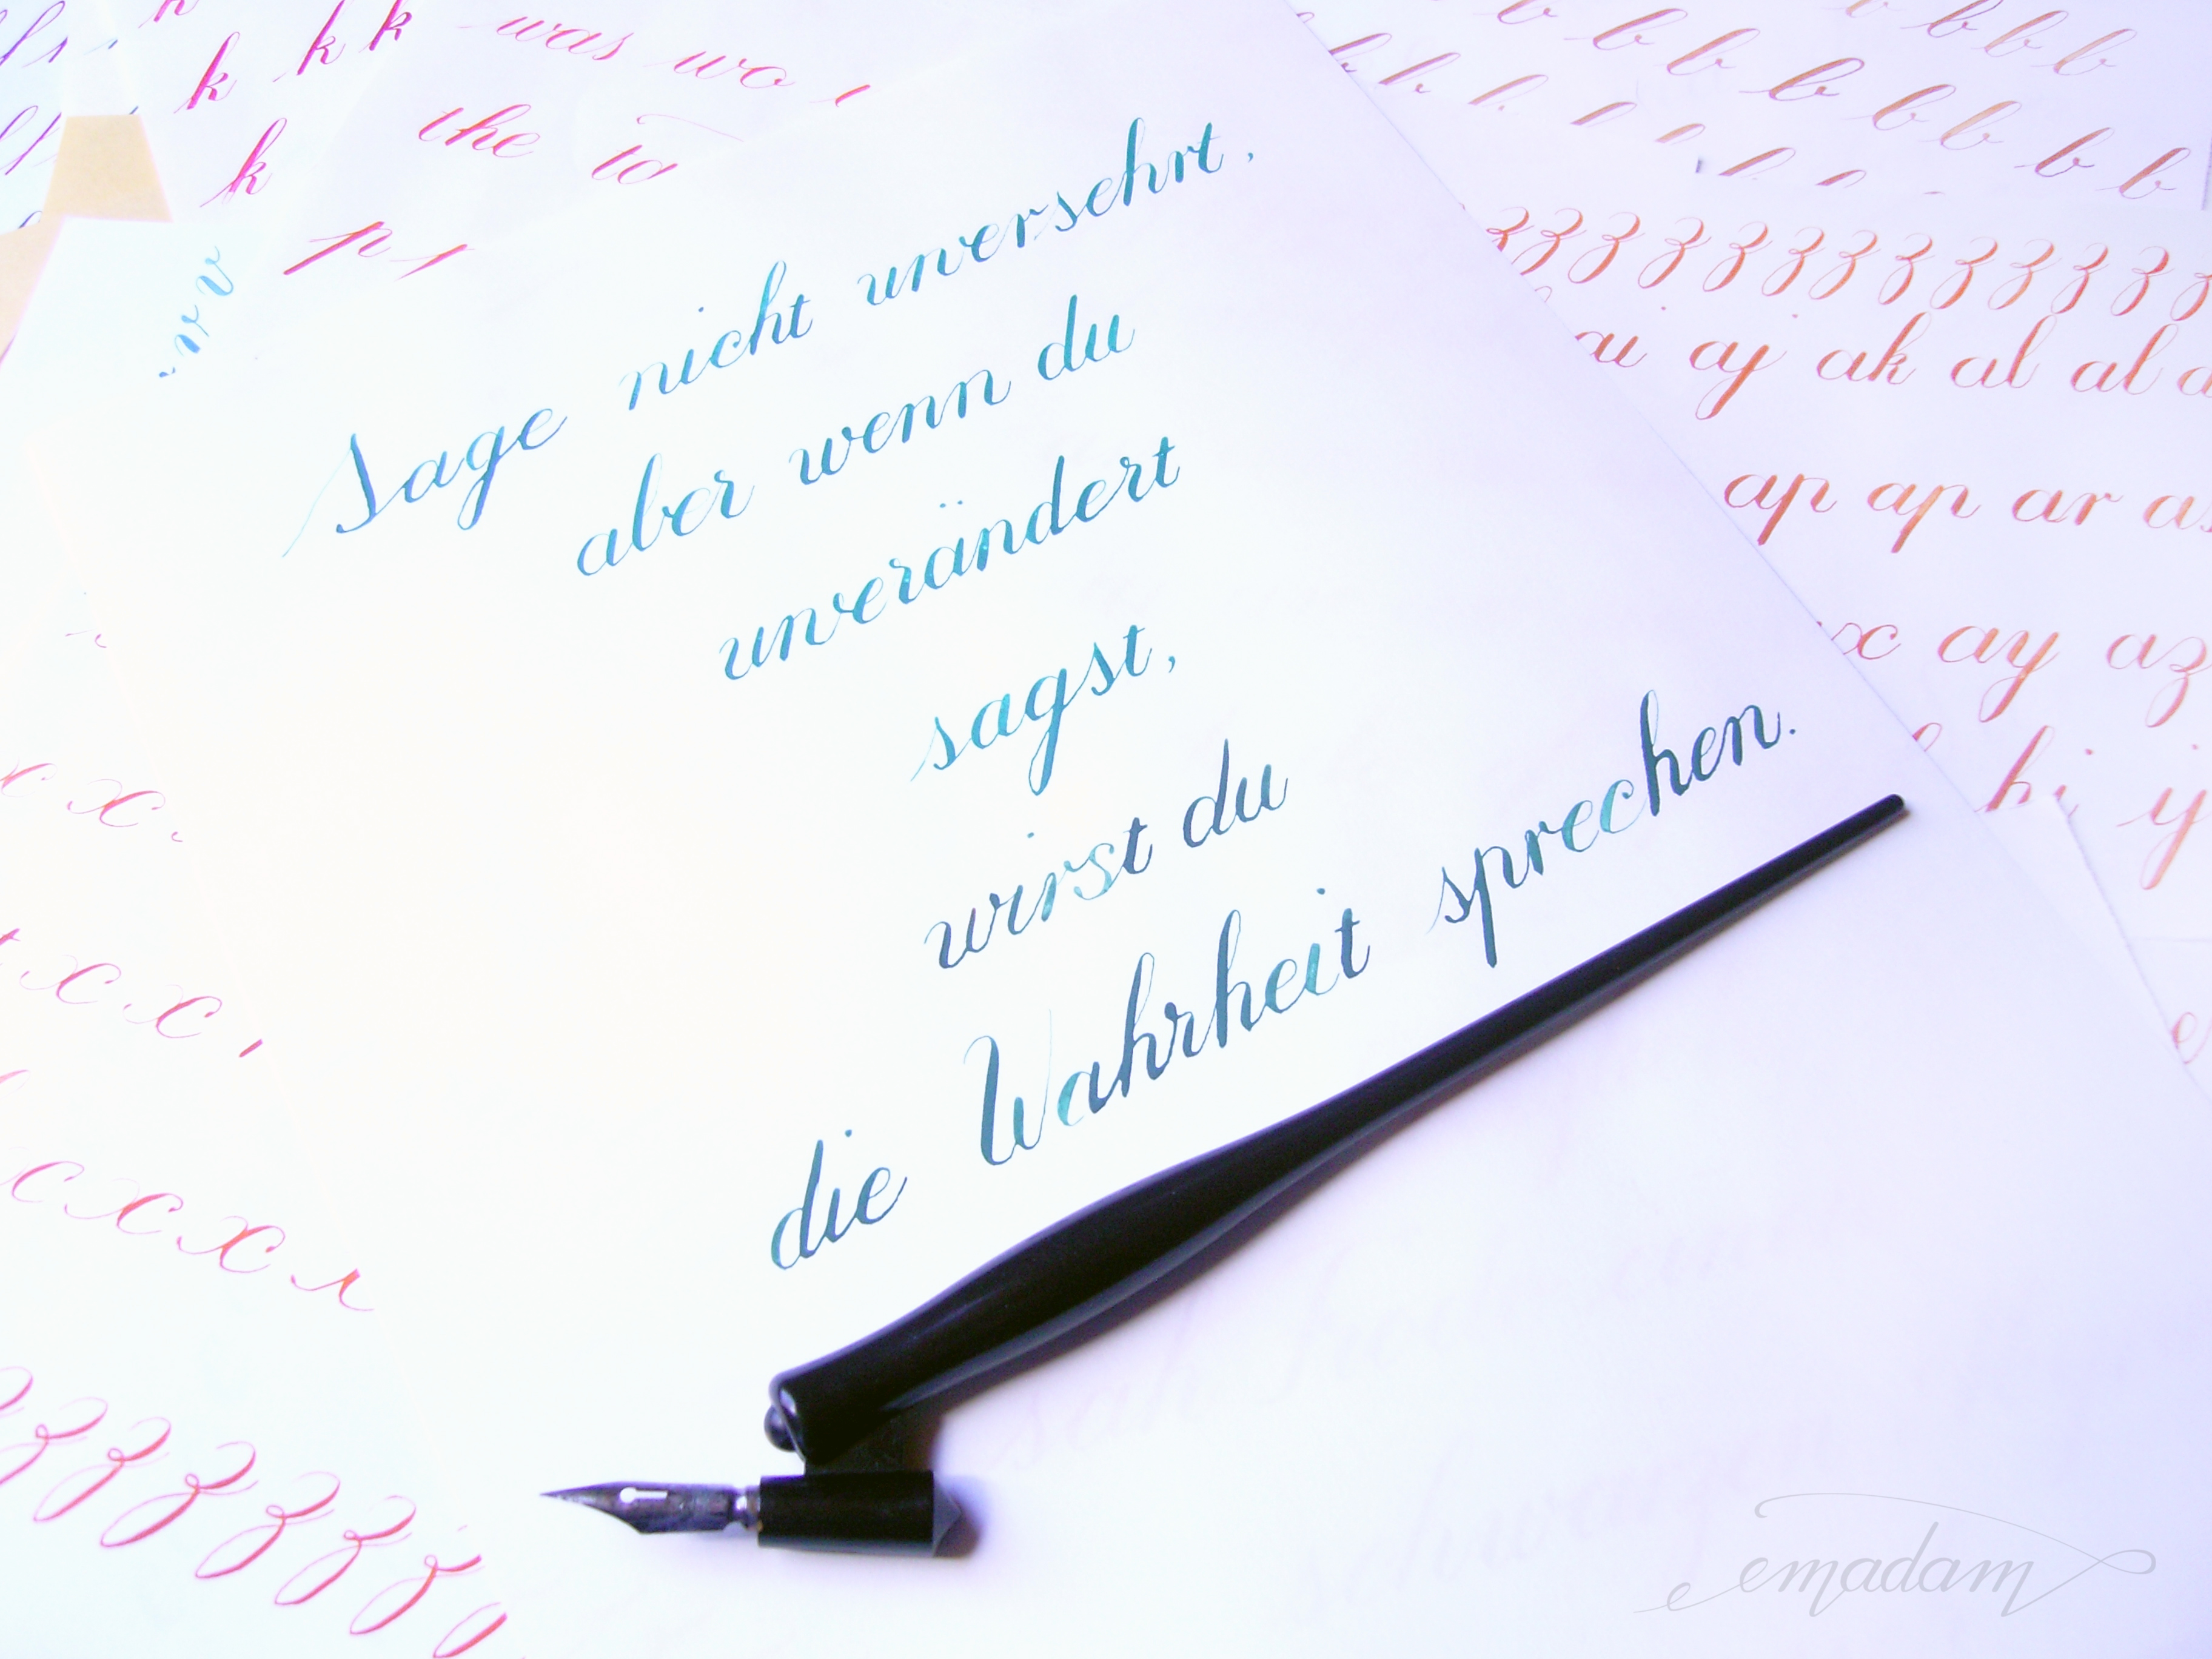 Sage nicht unversehrt,
aber wenn du
unverändert
sagst,
wirst du
die Wahrheit sprechen.
k k k was wo
k the to
b b b b b b
b b b b b
z z z z z z z z z z z
ai aj ak al al
ap ap ar as
x ay az
hi y
v v v
x x
x x x
x x x r
z z z z z z
emadam